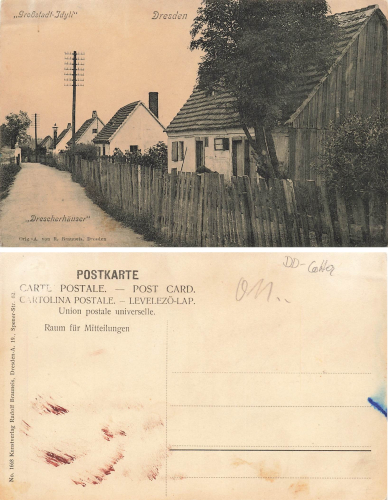 „Großstadt-Idyll"
Dresden
„Drescherhäuser"
Orig.-A. von R. Brauneis, Dresden
DD-Cotta
POSTKARTE
CARTE POSTALE. — POST CARD.
CARTOLINA POSTALE. – LEVELEZŐ-LAP.
Union postale universelle.
Raum für Mitteilungen
No. Kunstverlag Rudolf Brauneis, Dresden-A. 19., Spener-Str.